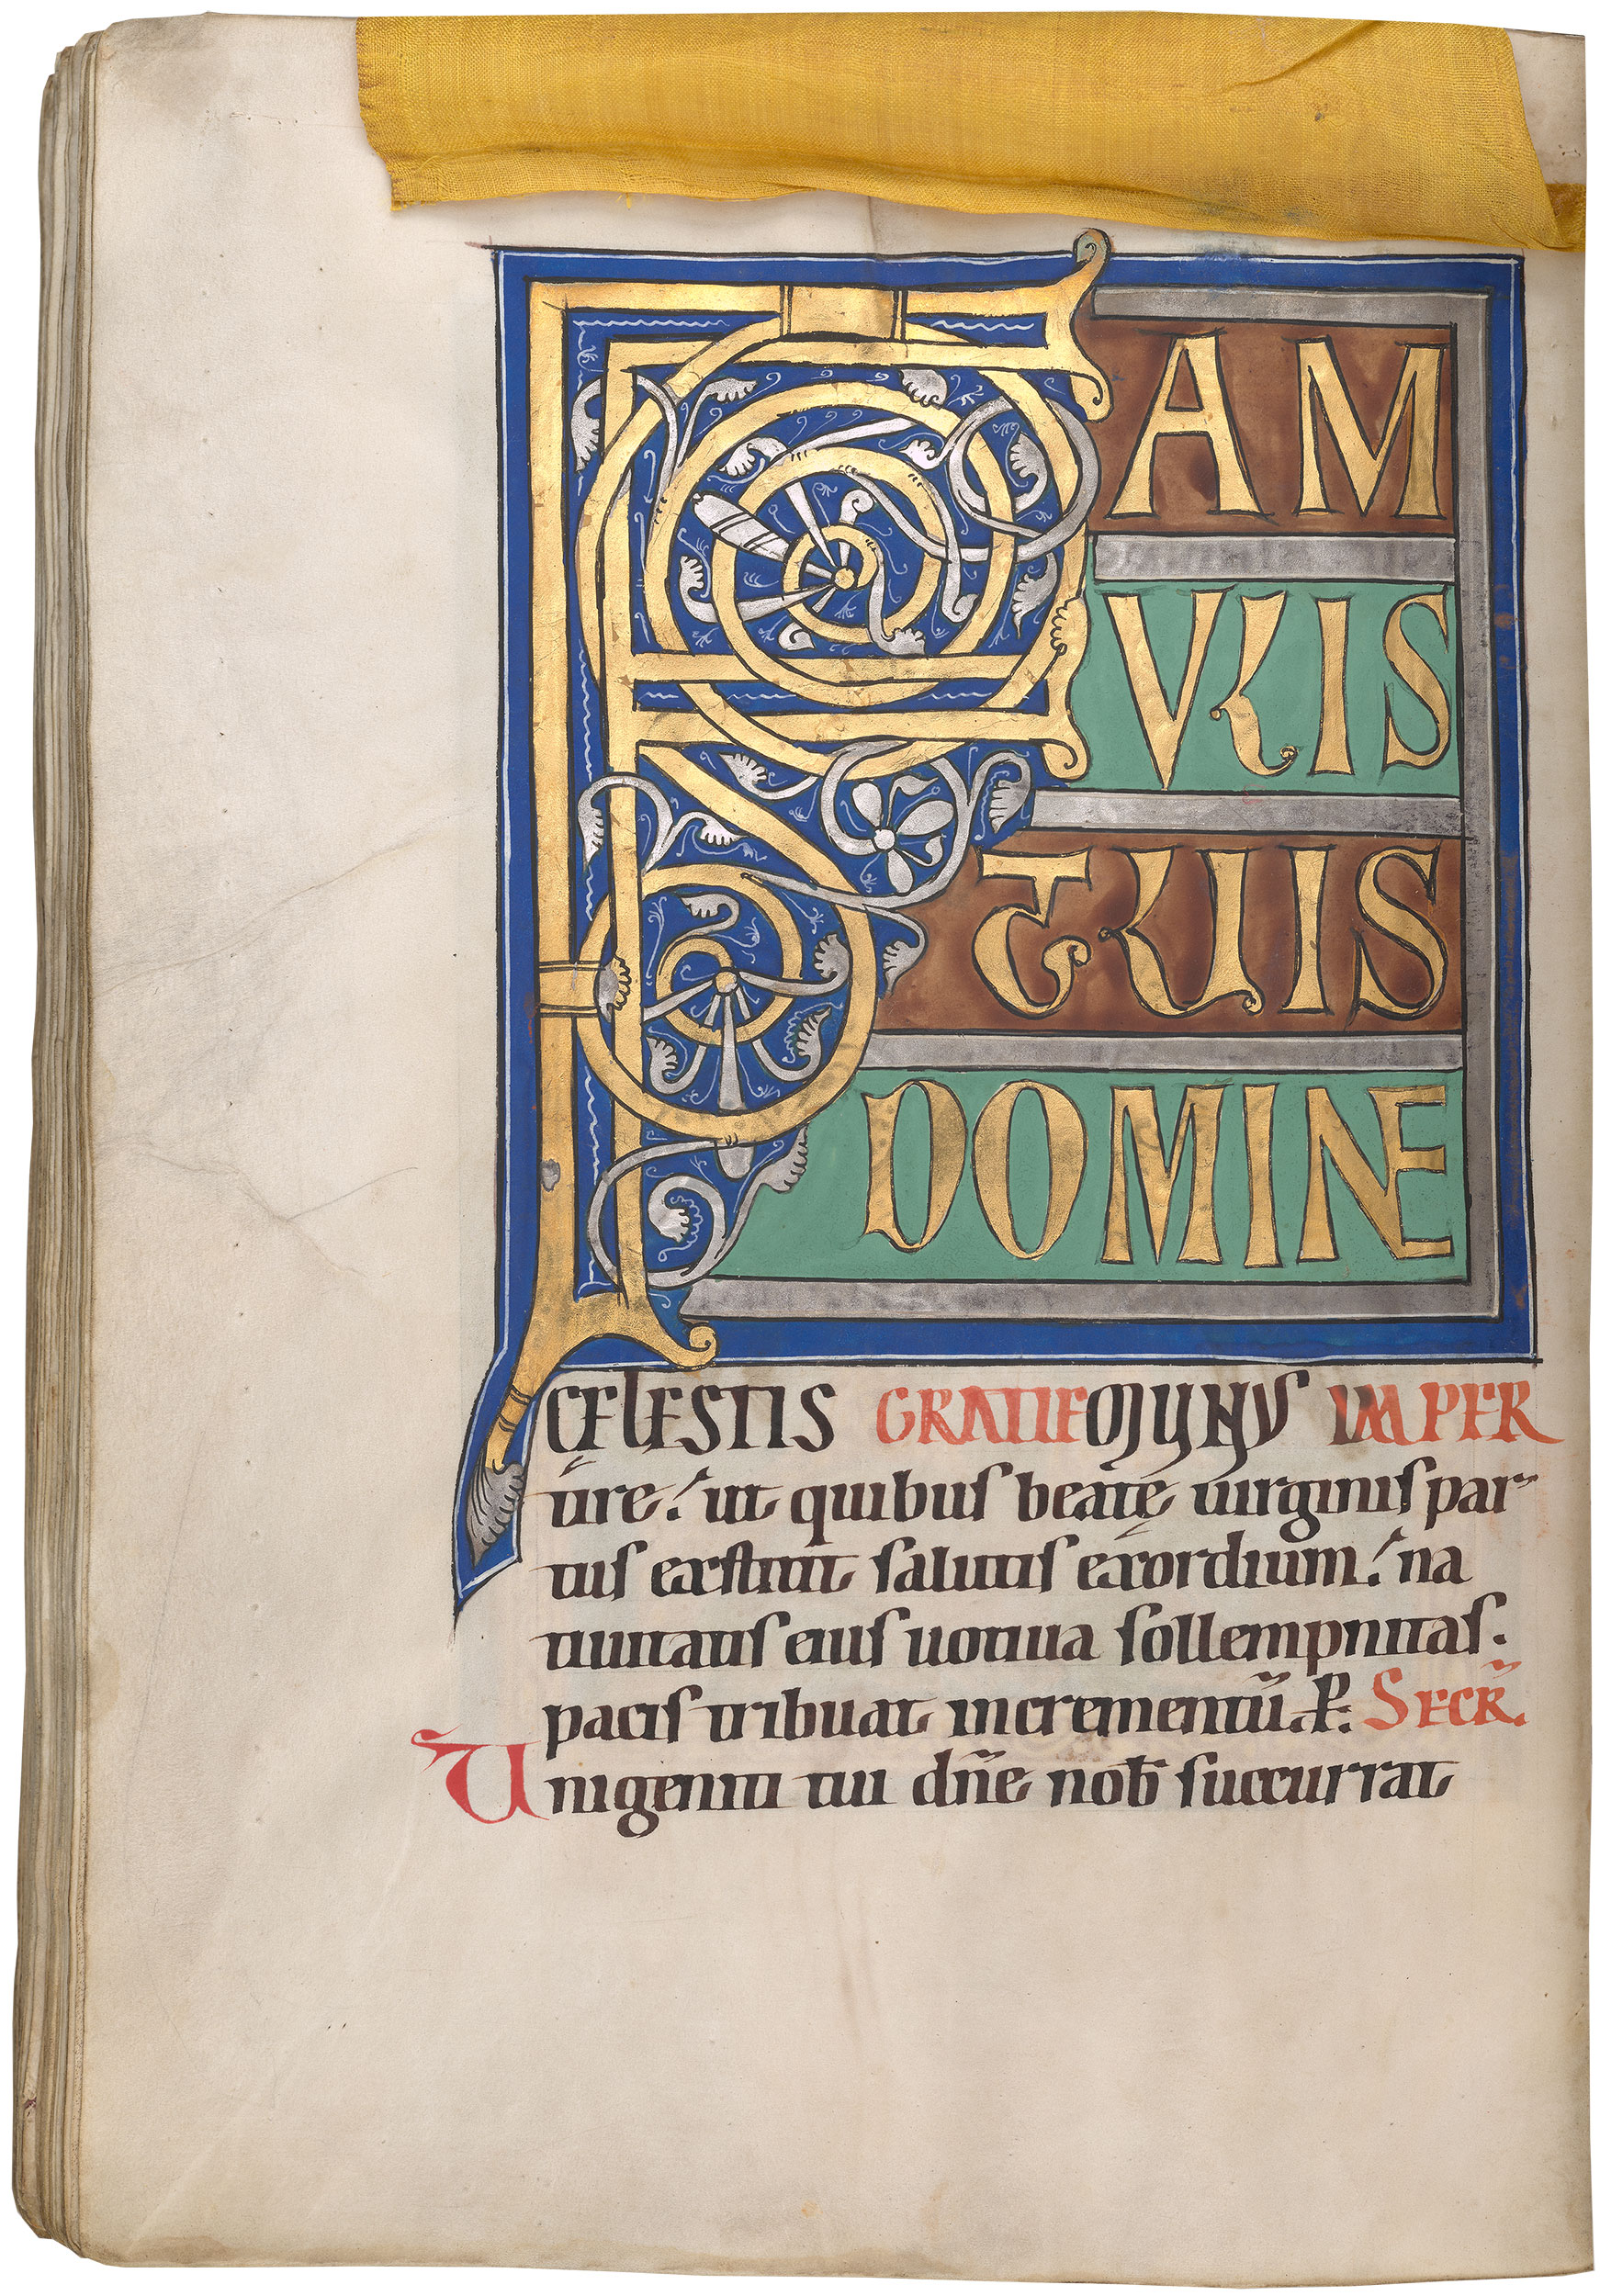 FAM
VLIS
TUIS
DOMINE
CELESTIS GRATIE MUNUS IMPER
tire. ut quibus beatę uirginis par-
tus exstitit salutis exordium. na
tiuitatis eius uotiua sollempnitas.
pacis tribuat incrementū. P. SECR̄.
Unigeniti tui dn̄e nob̄ succurrat